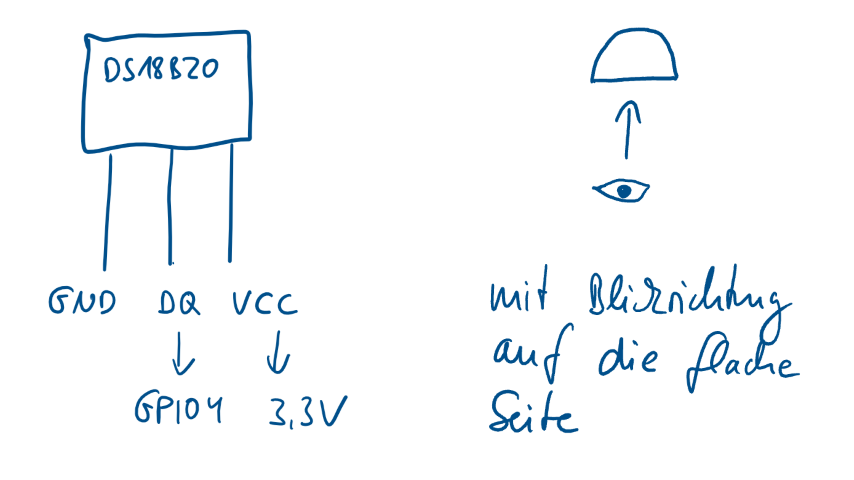 DS18B20
GND DQ VCC
GPIO4 3,3V
mit Blickrichtung
auf die flache
Seite